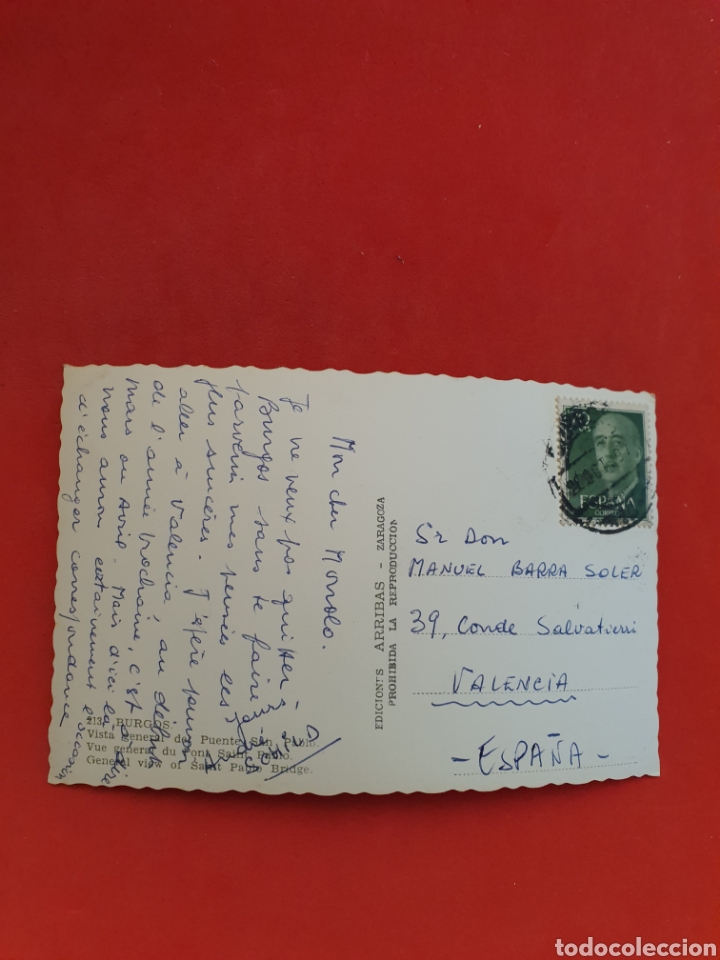 Mon cher Manolo.
Je ne veux pas quitter
Burgos sans te faire
parvenir mes pensées les
plus sincères. J'espère pouvoir
aller à Valencia, au début
de l'année prochaine, c'est à dire
mars ou Avril. Mais d'ici là
nous aurons certainement l'occasion
d'échanger correspondance
213. BURGOS.
Vista general del Puente San Pablo.
Vue general du Pont Saint Pablo.
General view of Saint Pablo Bridge.
EDICIONES ARRIBAS - ZARAGOZA
PROHIBIDA LA REPRODUCCION
ESPAÑA
CORREOS
Sr Don
MANUEL BARRA SOLER
39, Conde Salvatierra
VALENCIA
- ESPAÑA -
todocoleccion